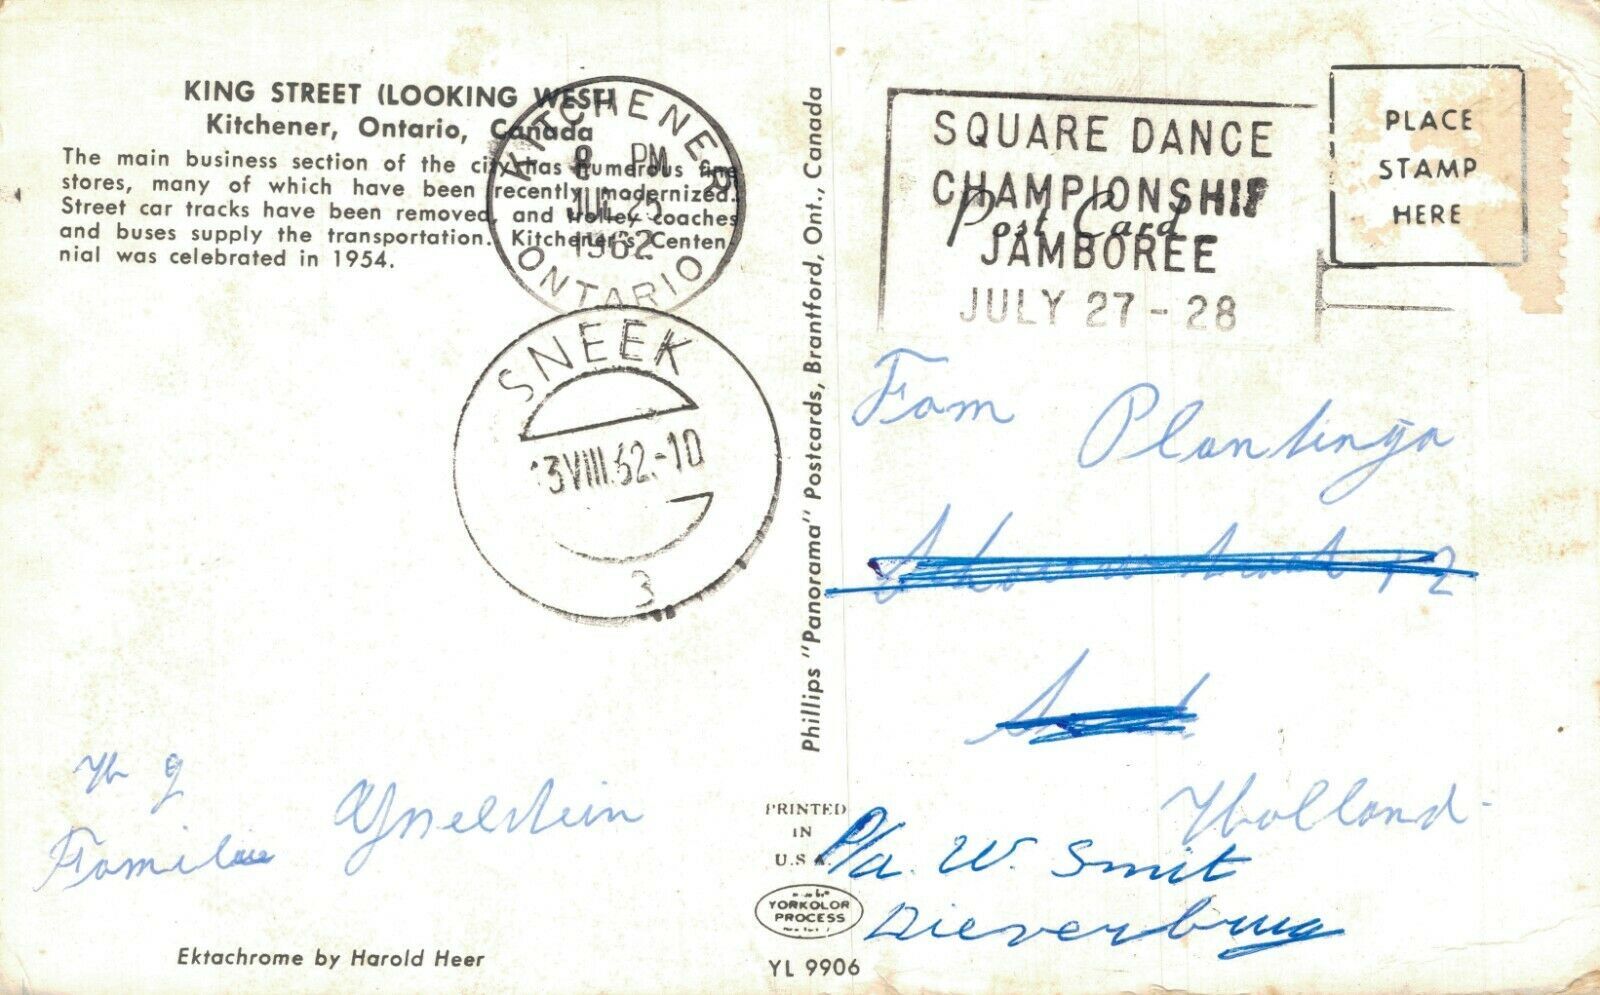 KING STREET (LOOKING WEST)
Kitchener, Ontario, Canada
The main business section of the city has numerous fine
stores, many of which have been recently modernized.
Street car tracks have been removed, and trolley coaches
and buses supply the transportation. Kitchener's Centen
nial was celebrated in 1954.
KITCHENER
8 PM
JUL 25
1962
ONTARIO
SNEEK
13 VIII.62.-10
3
Familie Ysselstein
Ektachrome by Harold Heer
Phillips "Panorama" Postcards, Brantford, Ont., Canada
PRINTED
IN
U.S.A.
YORKOLOR
PROCESS
YL 9906
SQUARE DANCE
CHAMPIONSHIP
Post Card
JAMBOREE
JULY 27-28
PLACE
STAMP
HERE
Fam Plantinga
12
Holland
P/a. W. Smit
Dieverbrug